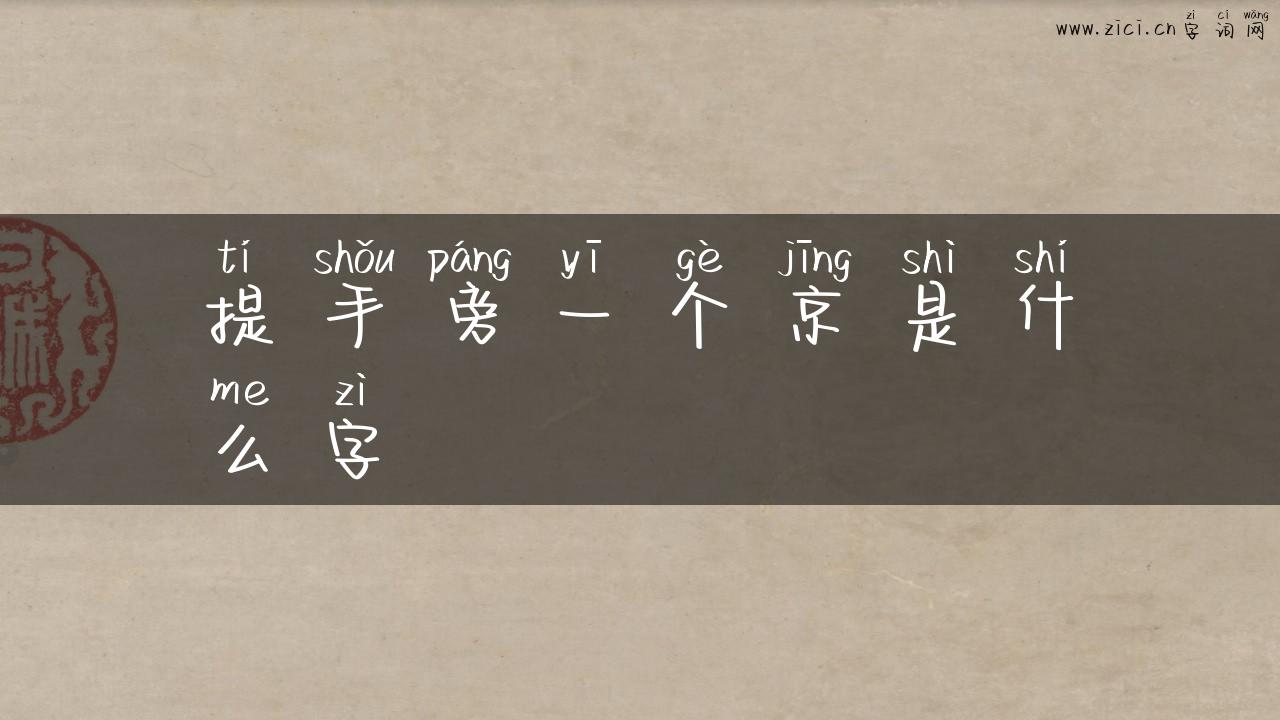 zì cí wǎng
www.zici.cn 字词网
tí shǒu páng yī gè jīng shì shí
提手旁一个京是什
me zì
么字